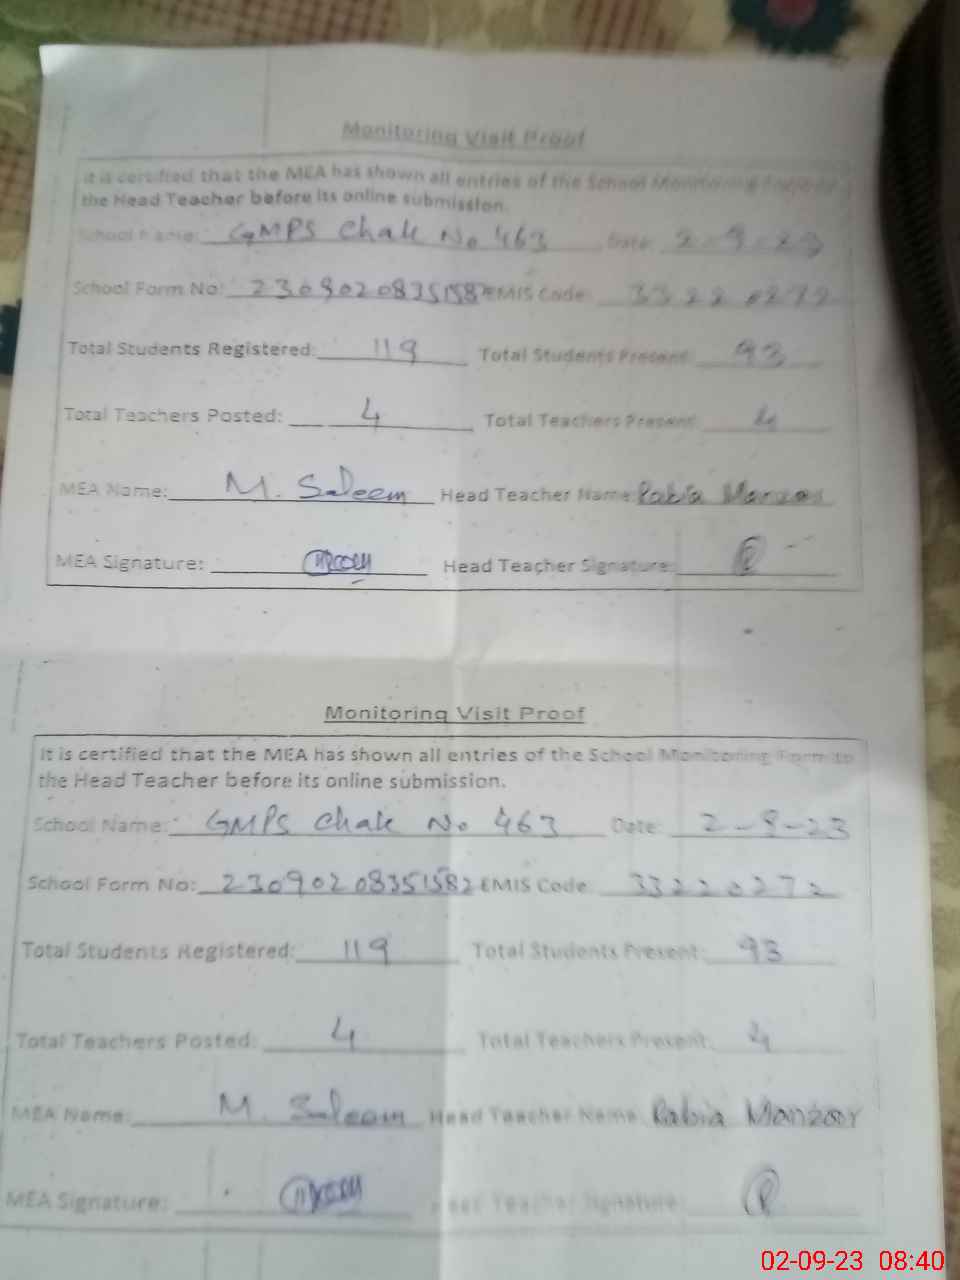 Monitoring Visit Proof
It is certified that the MEA has shown all entries of the School Monitoring
the Head Teacher before its online submission.
School Name: GMPS Chak No 463 Date: 2-9-23
School Form No: 2309020835158 EMIS Code: 33220272
Total Students Registered: 119 Total Students Present: 93
Total Teachers Posted: 4 Total Teachers Present: 4
MEA Name: M. Saleem Head Teacher Name: Rabia Manzoor
MEA Signature: Head Teacher Signature:
Monitoring Visit Proof
It is certified that the MEA has shown all entries of the School Monitoring Form to
the Head Teacher before its online submission.
School Name: GMPS Chak No 463 Date: 2-9-23
School Form No: 23090208351582 EMIS Code: 33220272
Total Students Registered: 119 Total Students Present: 93
Total Teachers Posted: 4 Total Teachers Present: 4
MEA Name: M. Saleem Head Teacher Name: Rabia Manzoor
MEA Signature: Head Teacher Signature:
02-09-23 08:40